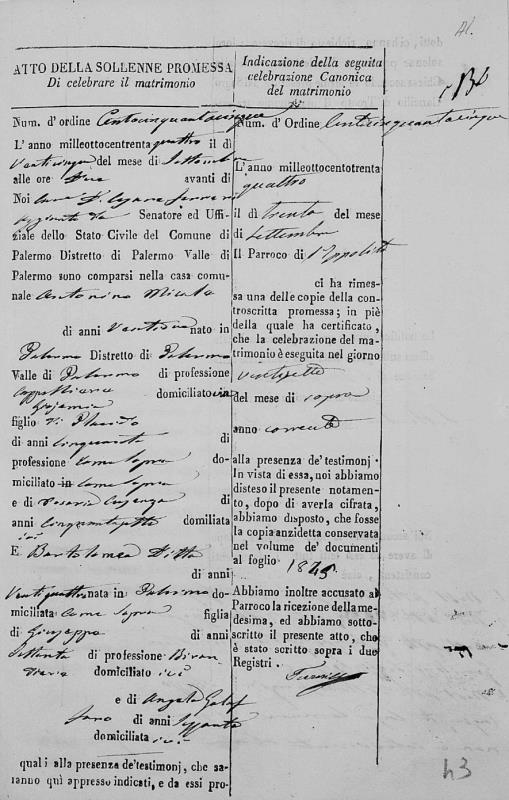 ATTO DELLA SOLLENNE PROMESSA
Di celebrare il matrimonio
Num. d'ordine Centocinquantacinque
L'anno milleottocentrenta quattro il dì
Venticinque del mese di Settembre
alle ore avanti di
Noi
Aggiunto Senatore ed Uffi-
ziale dello Stato Civile del Comune di
Palermo Distretto di Palermo Valle di
Palermo sono comparsi nella casa comu-
nale Antonino
di anni nato in
Palermo Distretto di Palermo
Valle di Palermo di professione
domiciliato
figlio di Placido
di anni cinquanta di
professione come sopra do-
miciliato in come sopra
e di Rosaria di
anni cinquantasette domiliata
ivi
E Bartolomea
di anni
Ventiquattro nata in Palermo do-
miciliata come sopra figlia
di Giuseppe di anni
Settanta di professione
domiciliato ivi
e di Angela
di anni Sessanta
domiciliata ivi
quali alla presenza de'testimonj, che sa-
ranno quì appresso indicati, e da essi pro-
Indicazione della seguita
celebrazione Canonica
del matrimonio
Num. d'Ordine Centocinquantacinque
L'anno milleottocentotrenta
quattro
il dì trenta del mese
di Settembre
Il Parroco di S. Ippolito
ci ha rimes-
sa una delle copie della con-
troscritta promessa; in piè
della quale ha certificato,
che la celebrazione del ma-
trimonio è eseguita nel giorno
ventisette
del mese di sopra
anno corrente
alla presenza de'testimonj.
In vista di essa, noi abbiamo
disteso il presente notamen-
to, dopo di averla cifrata,
abbiamo disposto, che fosse
la copia anzidetta conservata
nel volume de'documenti
al foglio 1845
Abbiamo inoltre accusato al
Parroco la ricezione della me-
desima, ed abbiamo sotto-
scritto il presente atto, che
è stato scritto sopra i due
Registri.
43